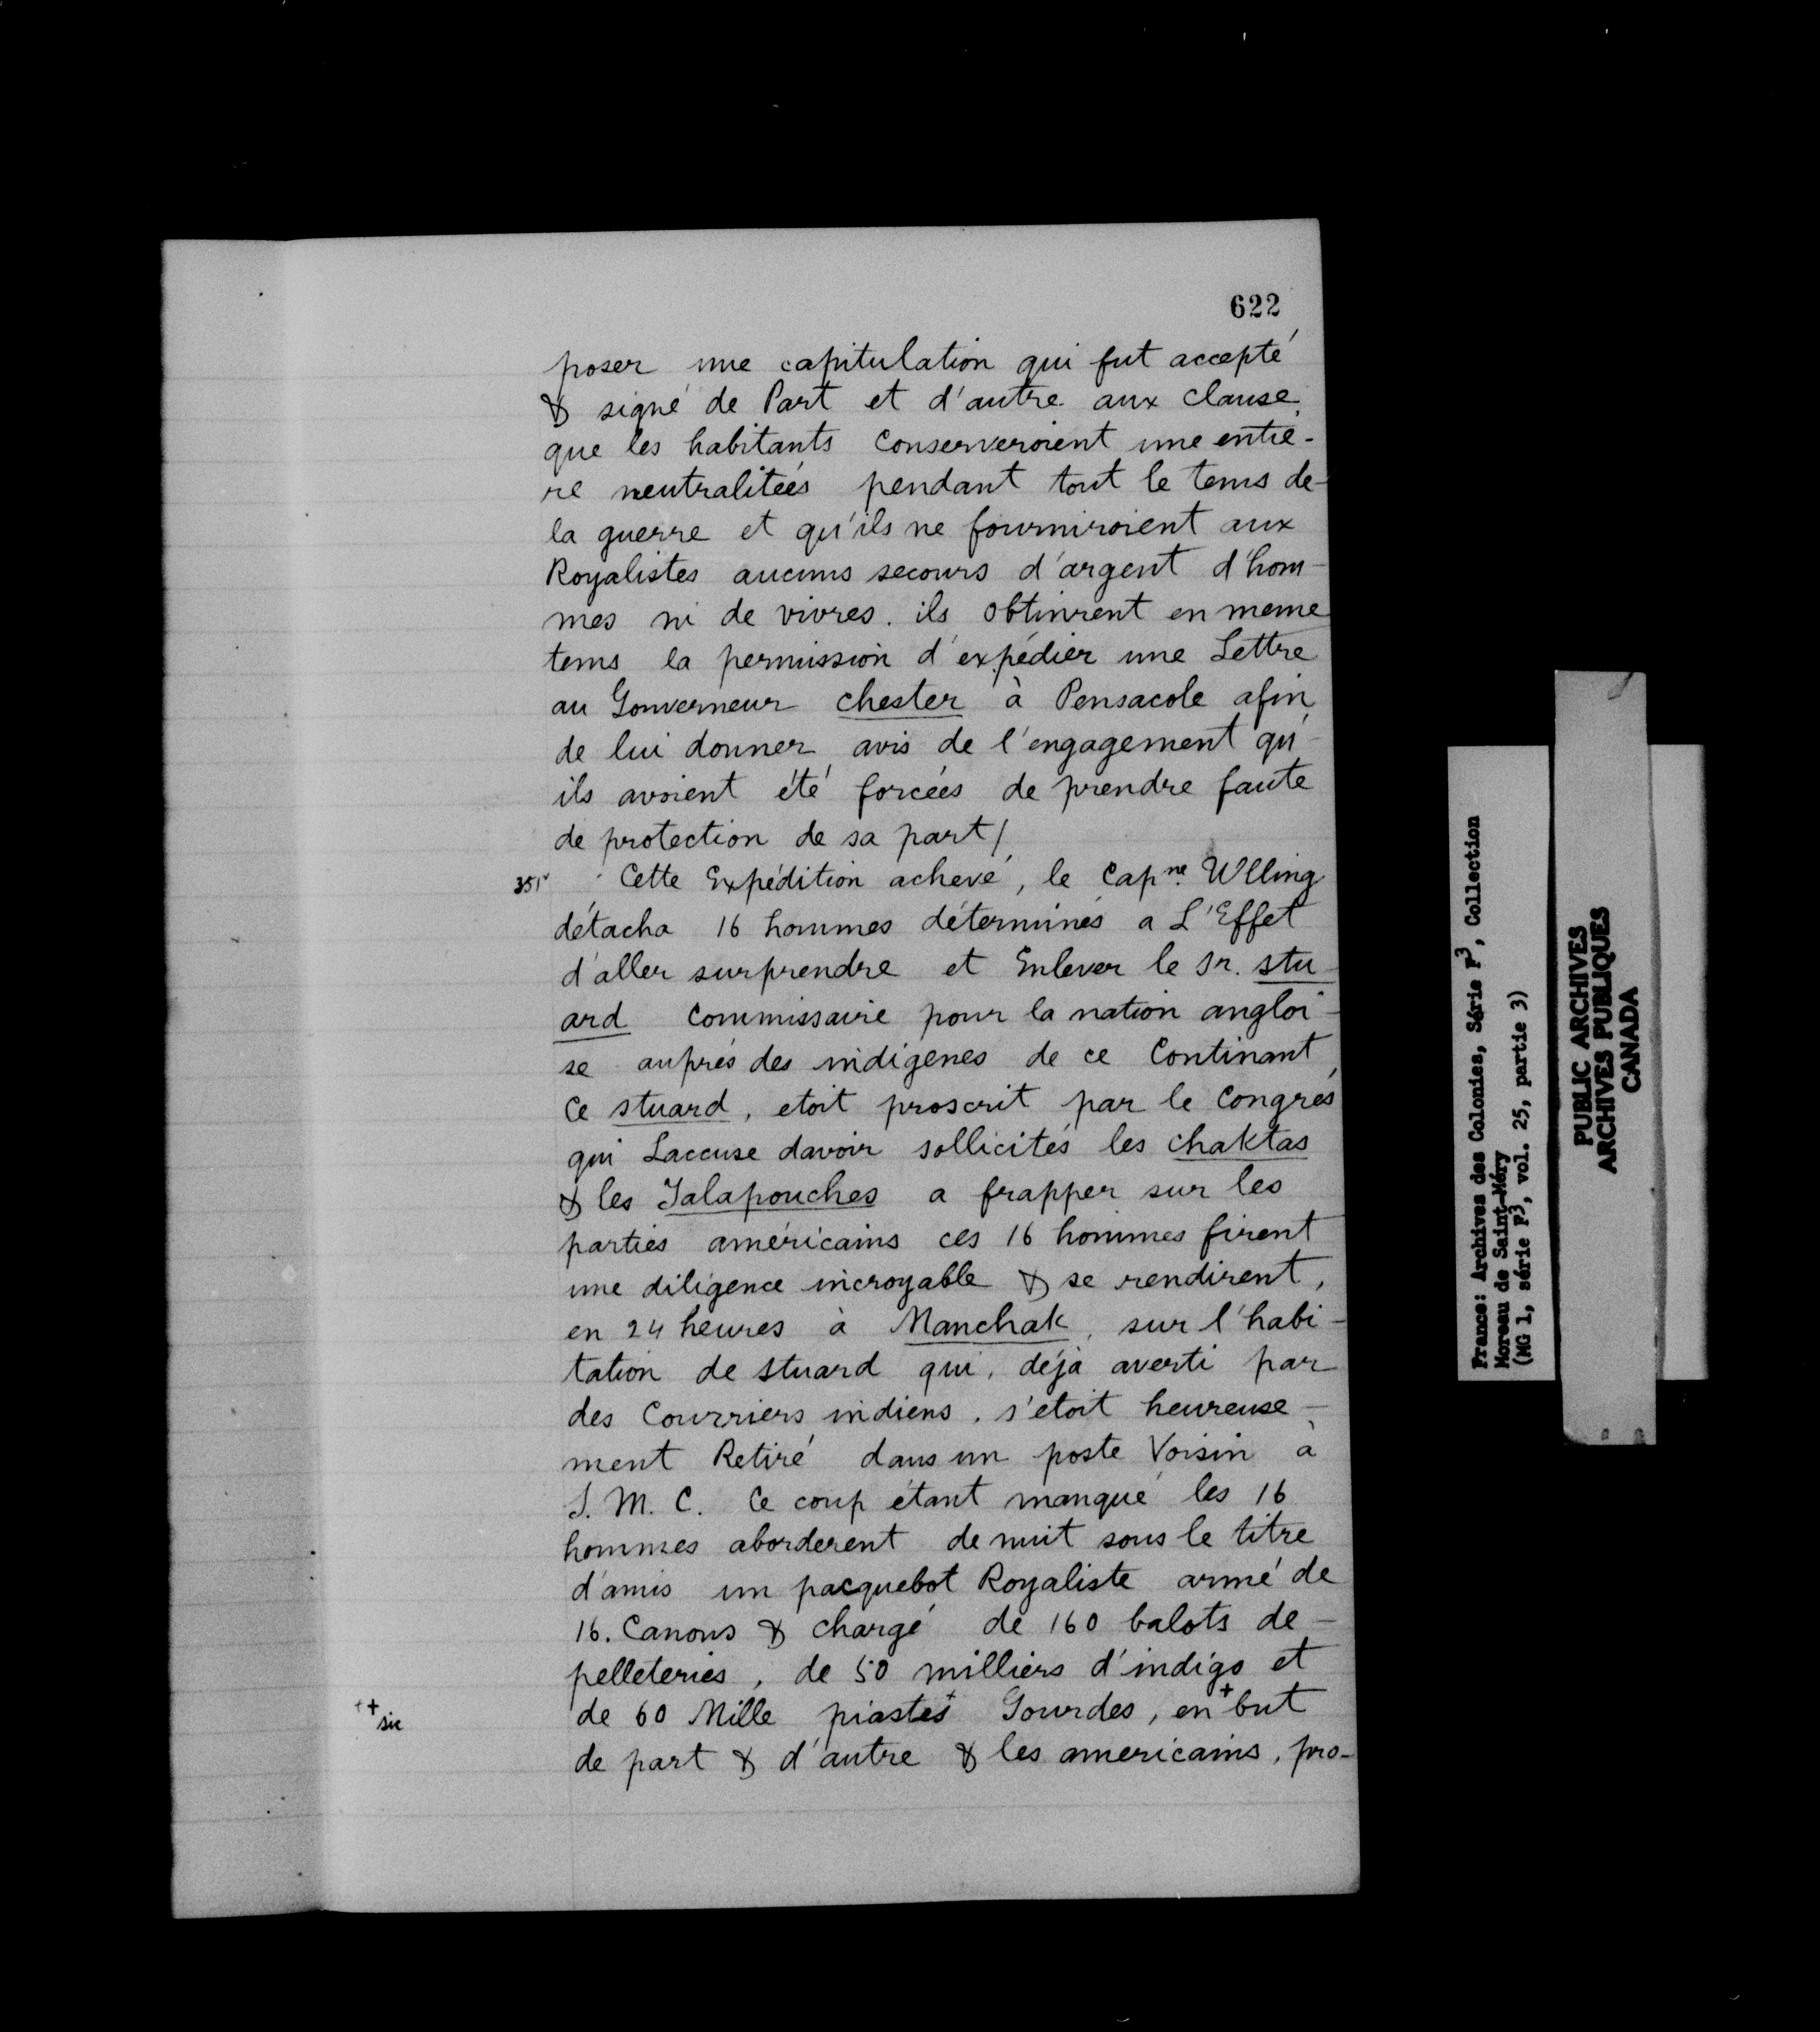 622
poser une capitulation qui fut accepté
& signé de Part et d'autre aux clause
que les habitants Conserveroient une entie-
re neutralitées pendant tout le tems de-
la guerre et qu'ils ne fourniroient aux
Royalistes aucuns secours d'argent d'hom-
mes ni de vivres. ils obtinrent en meme
tems la permission d'expédier une Lettre
au Gouverneur chester à Pensacole afin
de lui donner avis de l'engagement qu'-
ils avoient été forcées de prendre faute
de protection de sa part/
351v Cette Expédition achevé, le Capne. Wlling
détacha 16 hommes déterminés a L'Effet
d'aller surprendre et Enlever le Sr. stu-
ard Commissaire pour la nation angloi-
se auprés des indigenes de ce Continant,
Ce stuard, etoit proscrit par le Congrés
qui Laccuse davoir sollicités les chaktas
& les Talapouches a frapper sur les
parties américains ces 16 hommes firent
une diligence incroyable & se rendirent,
en 24 heures à Manchak, sur l'habi-
tation de stuard qui, déja averti par
des Courriers indiens, s'etoit heureuse-
ment Retiré dans un poste Voisin à
S. M. C. Ce coup étant manqué les 16
hommes aborderent de nuit sous le titre
d'amis un pacquebot Royaliste armé de
16. Canons & chargé de 160 balots de-
pelleteries, de 50 milliers d'indigo et
++ sic
de 60 Mille piastes+ Gourdes, en+ but
de part & d'autre & les americains, pro-
France: Archives des Colonies, Série F3, Collection
Moreau de Saint-Méry
(MG 1, série F3, vol. 25, partie 3)
PUBLIC ARCHIVES
ARCHIVES PUBLIQUES
CANADA